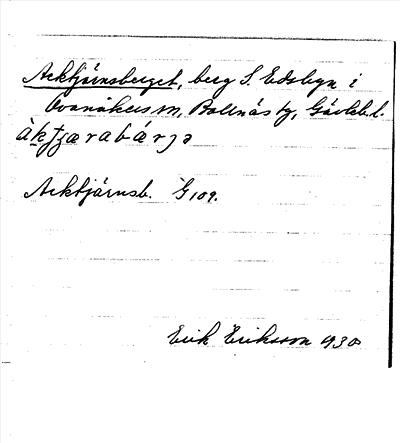 Acktjärnsberget, berg S. Edsbyn i
Ovanåkers sn, Bollnäs tg, Gävleb. l.
àk̲tʃærabárjə
Acktjärnsb. G 109.
Erik Eriksson 1930